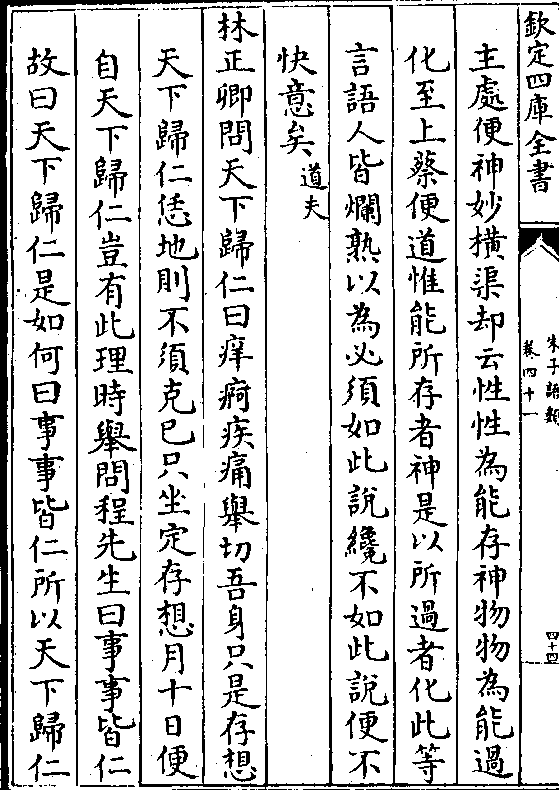 欽定四庫全書
朱子語類
卷四十一
四十四
主處便神妙橫渠却云性性為能存神物物為能過
化至上蔡便道惟能所存者神是以所過者化此等
言語人皆爛熟以為必須如此說纔不如此說便不
快意矣道夫
林正卿問天下歸仁曰痒疴疾痛舉切吾身只是存想
天下歸仁恁地則不須克己只坐定存想月十日便
自天下歸仁豈有此理時舉問程先生曰事事皆仁
故曰天下歸仁是如何曰事事皆仁所以天下歸仁